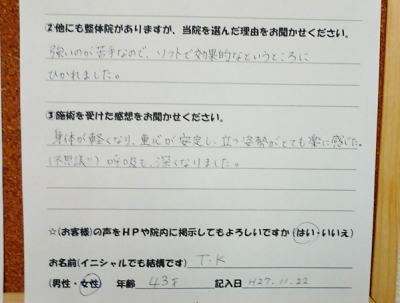 ②他にも整体院がありますが、当院を選んだ理由をお聞かせください。
強いのが苦手なので、ソフトで効果的なというところに
ひかれました。
③施術を受けた感想をお聞かせください。
身体が軽くなり、重心が安定し、立つ姿勢がとても楽に感じた。
(不思議!!) 呼吸も、深くなりました。
☆(お客様)の声をHPや院内に掲示してもよろしいですか (はい・いいえ)
お名前(イニシャルでも結構です) T.K
(男性・女性) 年齢 43才 記入日 H27.11.22